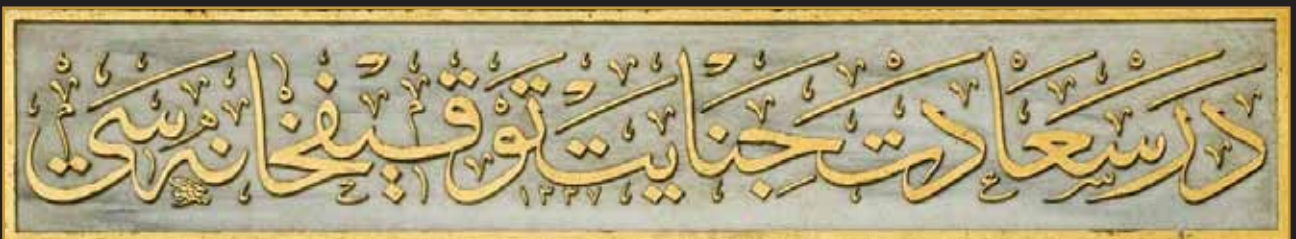 درسعادت جنايت توقيفخانه سى ١٣٣٧